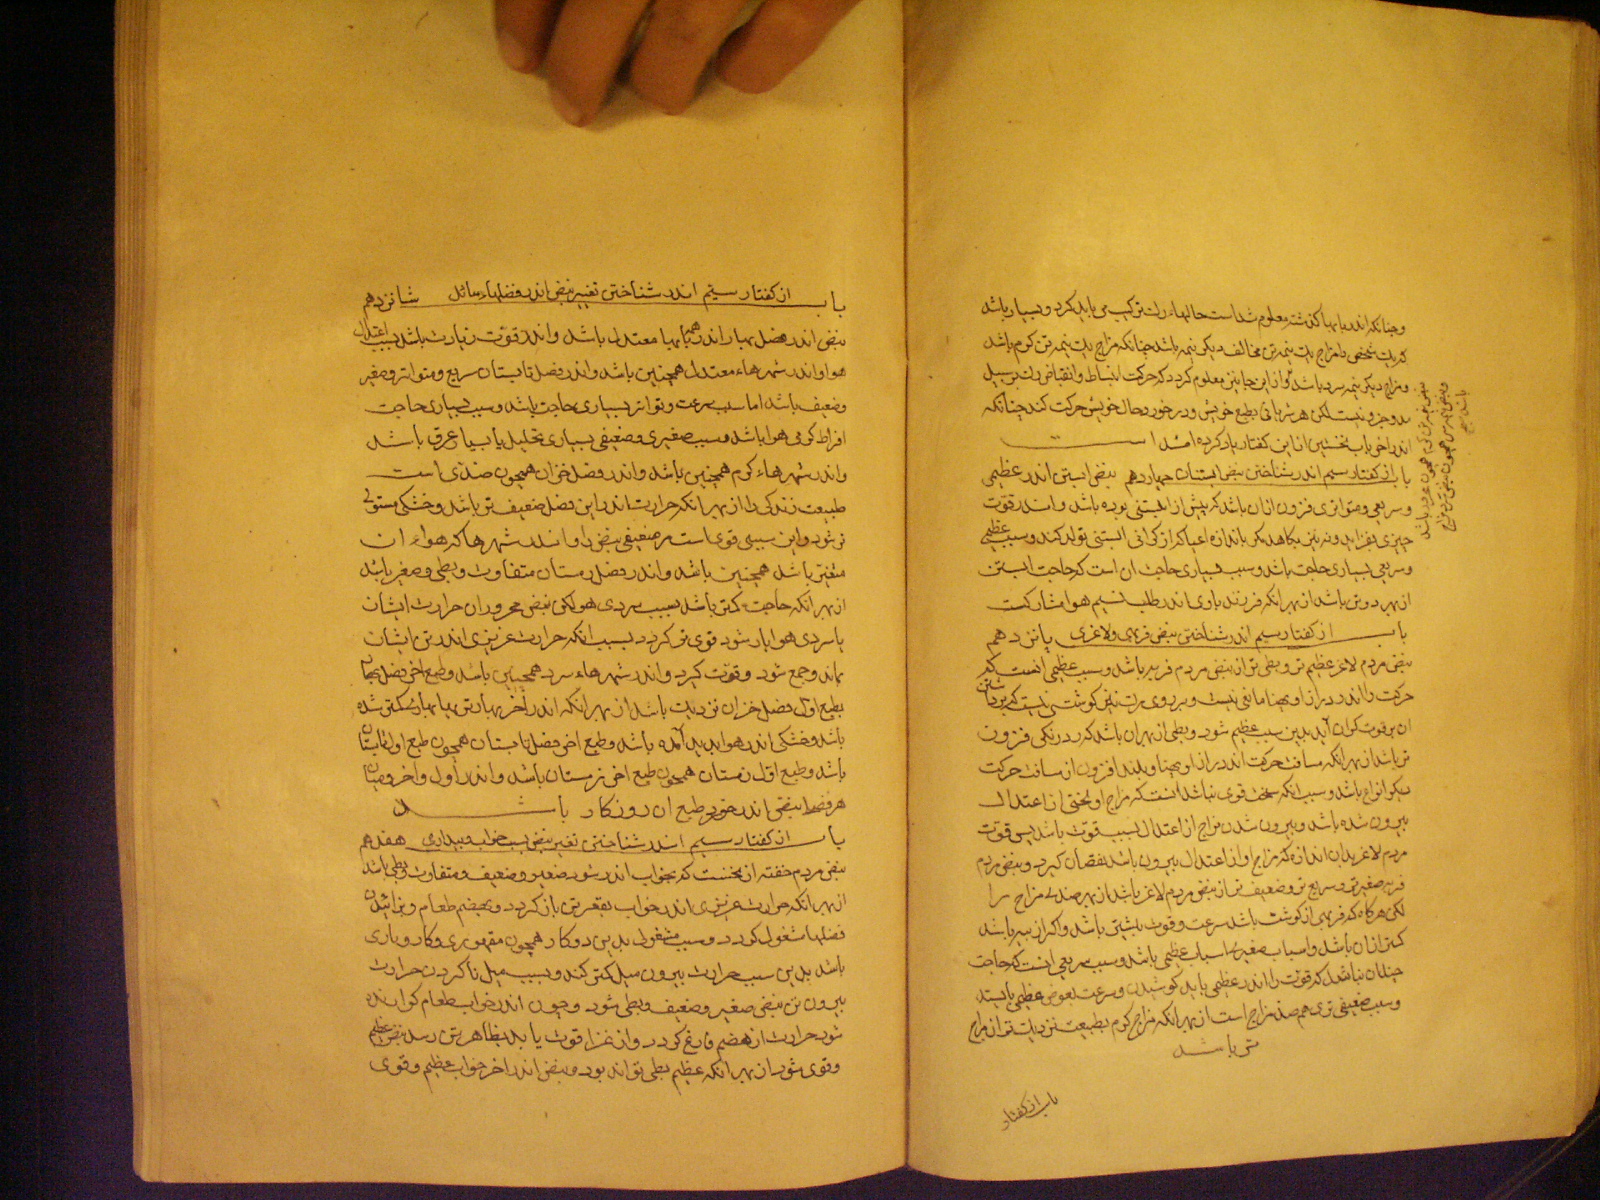 و چنانکه اندر بابها گذشته معلوم شد است حالها را ترکیب می باید کرد و بسیار باشد
که یک شخص را مزاج یک نیمه تن مخالف دیکر نیمه باشد چنانکه مزاج یک نیمه تن کرم باشد
و مزاج دیکر نیمه سرد باشد و از این جا نیز معلوم کردد که حرکت انبساط و انقباض رک بر سبیل
مد و جزر نیست لکن هر شریانی بطبع خویش و در خورد حال خویش حرکت کند چنانکه
اندر اخر باب نخستین از این کفتار یاد کرده امد است
باب از کفتار سیم اندر شناختن نبض ابستنان چهاردهم نبض ابستن اندر عظیمی
و سریعی و متواتری فزون از ان باشد که پیش از ابستنی بوده باشد و اندر قوت
چیزی نفزاید و نه نیز بکاهد مکر باندازه اعیا که از کرانی ابستنی تولد کند و سبب عظیمی
و سریعی بسیاری حاجت باشد و سبب بسیاری حاجت ان است که حاجت ابستن
از بهر دو تن باشد از بهر انکه فرزند با وی اندر طلب نسیم هوا مشارکست
باب از کفتار سیم اندر شناختن نبض فربهی و لاغری پانزدهم
نبض مردم لاغر عظیم تر و بطی تر از نبض مردم فربه باشد و سبب عظیمی انست که
حرکت را اندر دراز او پهنا مانعی نیست و بر روی رک نیز کوشتی نیست که برداشتن
ان بر قوت کران آید بدین سبب عظیم شود و بطی از بهر ان باشد که درنکی فزون
تر باشد از بهر انکه مسافت حرکت اندر دراز او پهنا و بلند افزون از مسافت حرکت
دیکر انواع باشد و سبب انکه سخت قوی نباشد انست که مزاج او لختی از اعتدال
بیرون شده باشد و بیرون شدن مزاج از اعتدال سبب قوت باشد پس قوت
مردم لاغر بدان اندازه که مزاج او از اعتدال بیرون باشد نقصان کیرد و نبض مردم
فربه صغیرتر و سریع تر و ضعیف تر از نبض مردم لاغر باشد از بهر ضدی مزاج را
لکن هرکاه که فربهی از کوشت باشد سرعت و قوت بیشتر باشد و اکر از پیه باشد
کمتر از ان باشد و اسباب صغیری اسباب عظیمی باشد و سبب سریعی انست که حاجت
چندان نباشد که قوت را اندر عظیمی باید کوشیدن و سرعت بعوض عظیمی بایستد
و سبب ضعیفی تری هم ضد مزاج است از بهر انکه مزاج کرم بطبیعت نزدیک تر از مزاج
تر باشد
باب از کفتار
باب از کفتار سیم اندر شناختن تغییر نبض اندر فصلهاء سال شانزدهم
نبض اندر فصل بهار اندر همه بابها معتدل باشد و اندر قوت زیادت باشد بسبب اعتدال
هوا و اندر شهرهاء معتدل همچنین باشد و اندر فصل تابستان سریع و متواتر و صغیر
و ضعیف باشد اما سبب سرعت و تواتر بسیاری حاجت باشد و سبب بسیاری حاجت
افراط کرمی هوا باشد و سبب صغیری و ضعیفی بسیاری تحلیل یا بسیار عرق باشد
و اندر شهرهاء کرم همچنین باشد و اندر فصل خزان همچون ضدی است
طبیعت زندکی را از بهر انکه حرارت اندر این فصل ضعیف تر باشد و خشکی مستولی
تر شود و این سببی قوی است مر ضعیفی نبض را و اندر شهرها که هواء ان
متغیر باشد همچنین باشد و اندر فصل زمستان متفاوت و بطی و صغیر باشد
از بهر انکه حاجت کمتر باشد بسبب سردی هوا لکن نبض محروران حرارت ایشان
با سردی هوا یار شود قوی تر کردد بسبب انکه حرارت غریزی اندر تن ایشان
بماند و جمع شود و قوت کیرد و اندر شهرهاء سرد همچنین باشد و طبع اخر فصل بهار
بطبع اول فصل خزان نزدیک باشد از بهر انکه اندر آخر بهار تری بهار کمتر شده
باشد و خشکی اندر هوا پدید آمده باشد و طبع اخر فصل تابستان همچون طبع اول تابستان
باشد و طبع اول زمستان همچون طبع اخر زمستان باشد و اندر اول و اخر و میان
هر فصل نبض اندر خور طبع ان روزکار باشد
باب از کفتار سیم اندر شناختن تغییر نبض بسبب خواب و بیداری هفدهم
نبض مردم خفته از نخست که بخواب اندر شود صغیر و ضعیف و متفاوت و بطی باشد
از بهر انکه حرارت غریزی اندر خواب بقعر تن باز کردد و بهضم طعام و پزانیدن
فضلها مشغول کردد و سبب مشغول بدین دو کار همچون مقهوری و کار و باری
باشد بدین سبب حرارت بیرون میل کمتر کند و بسبب میل نا کردن حرارت
بیرون تن نبض صغیر و ضعیف و بطی شود و چون اندر خواب طعام کوارنده
شود حرارت از هضم فارغ کردد و از غذا قوت یابد بظاهر تن رسد نبض عظیم
و قوی شود از بهر انکه عظیم بطی تواند بود و نبض اندر اخر خواب عظیم و قوی